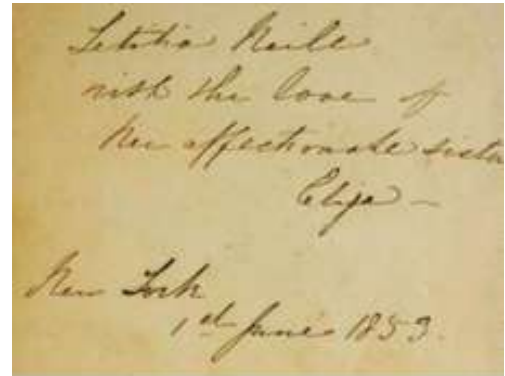 Letitia Neill
with the love of
her affectionate sister
Eliza —
New York
1st June 1853.